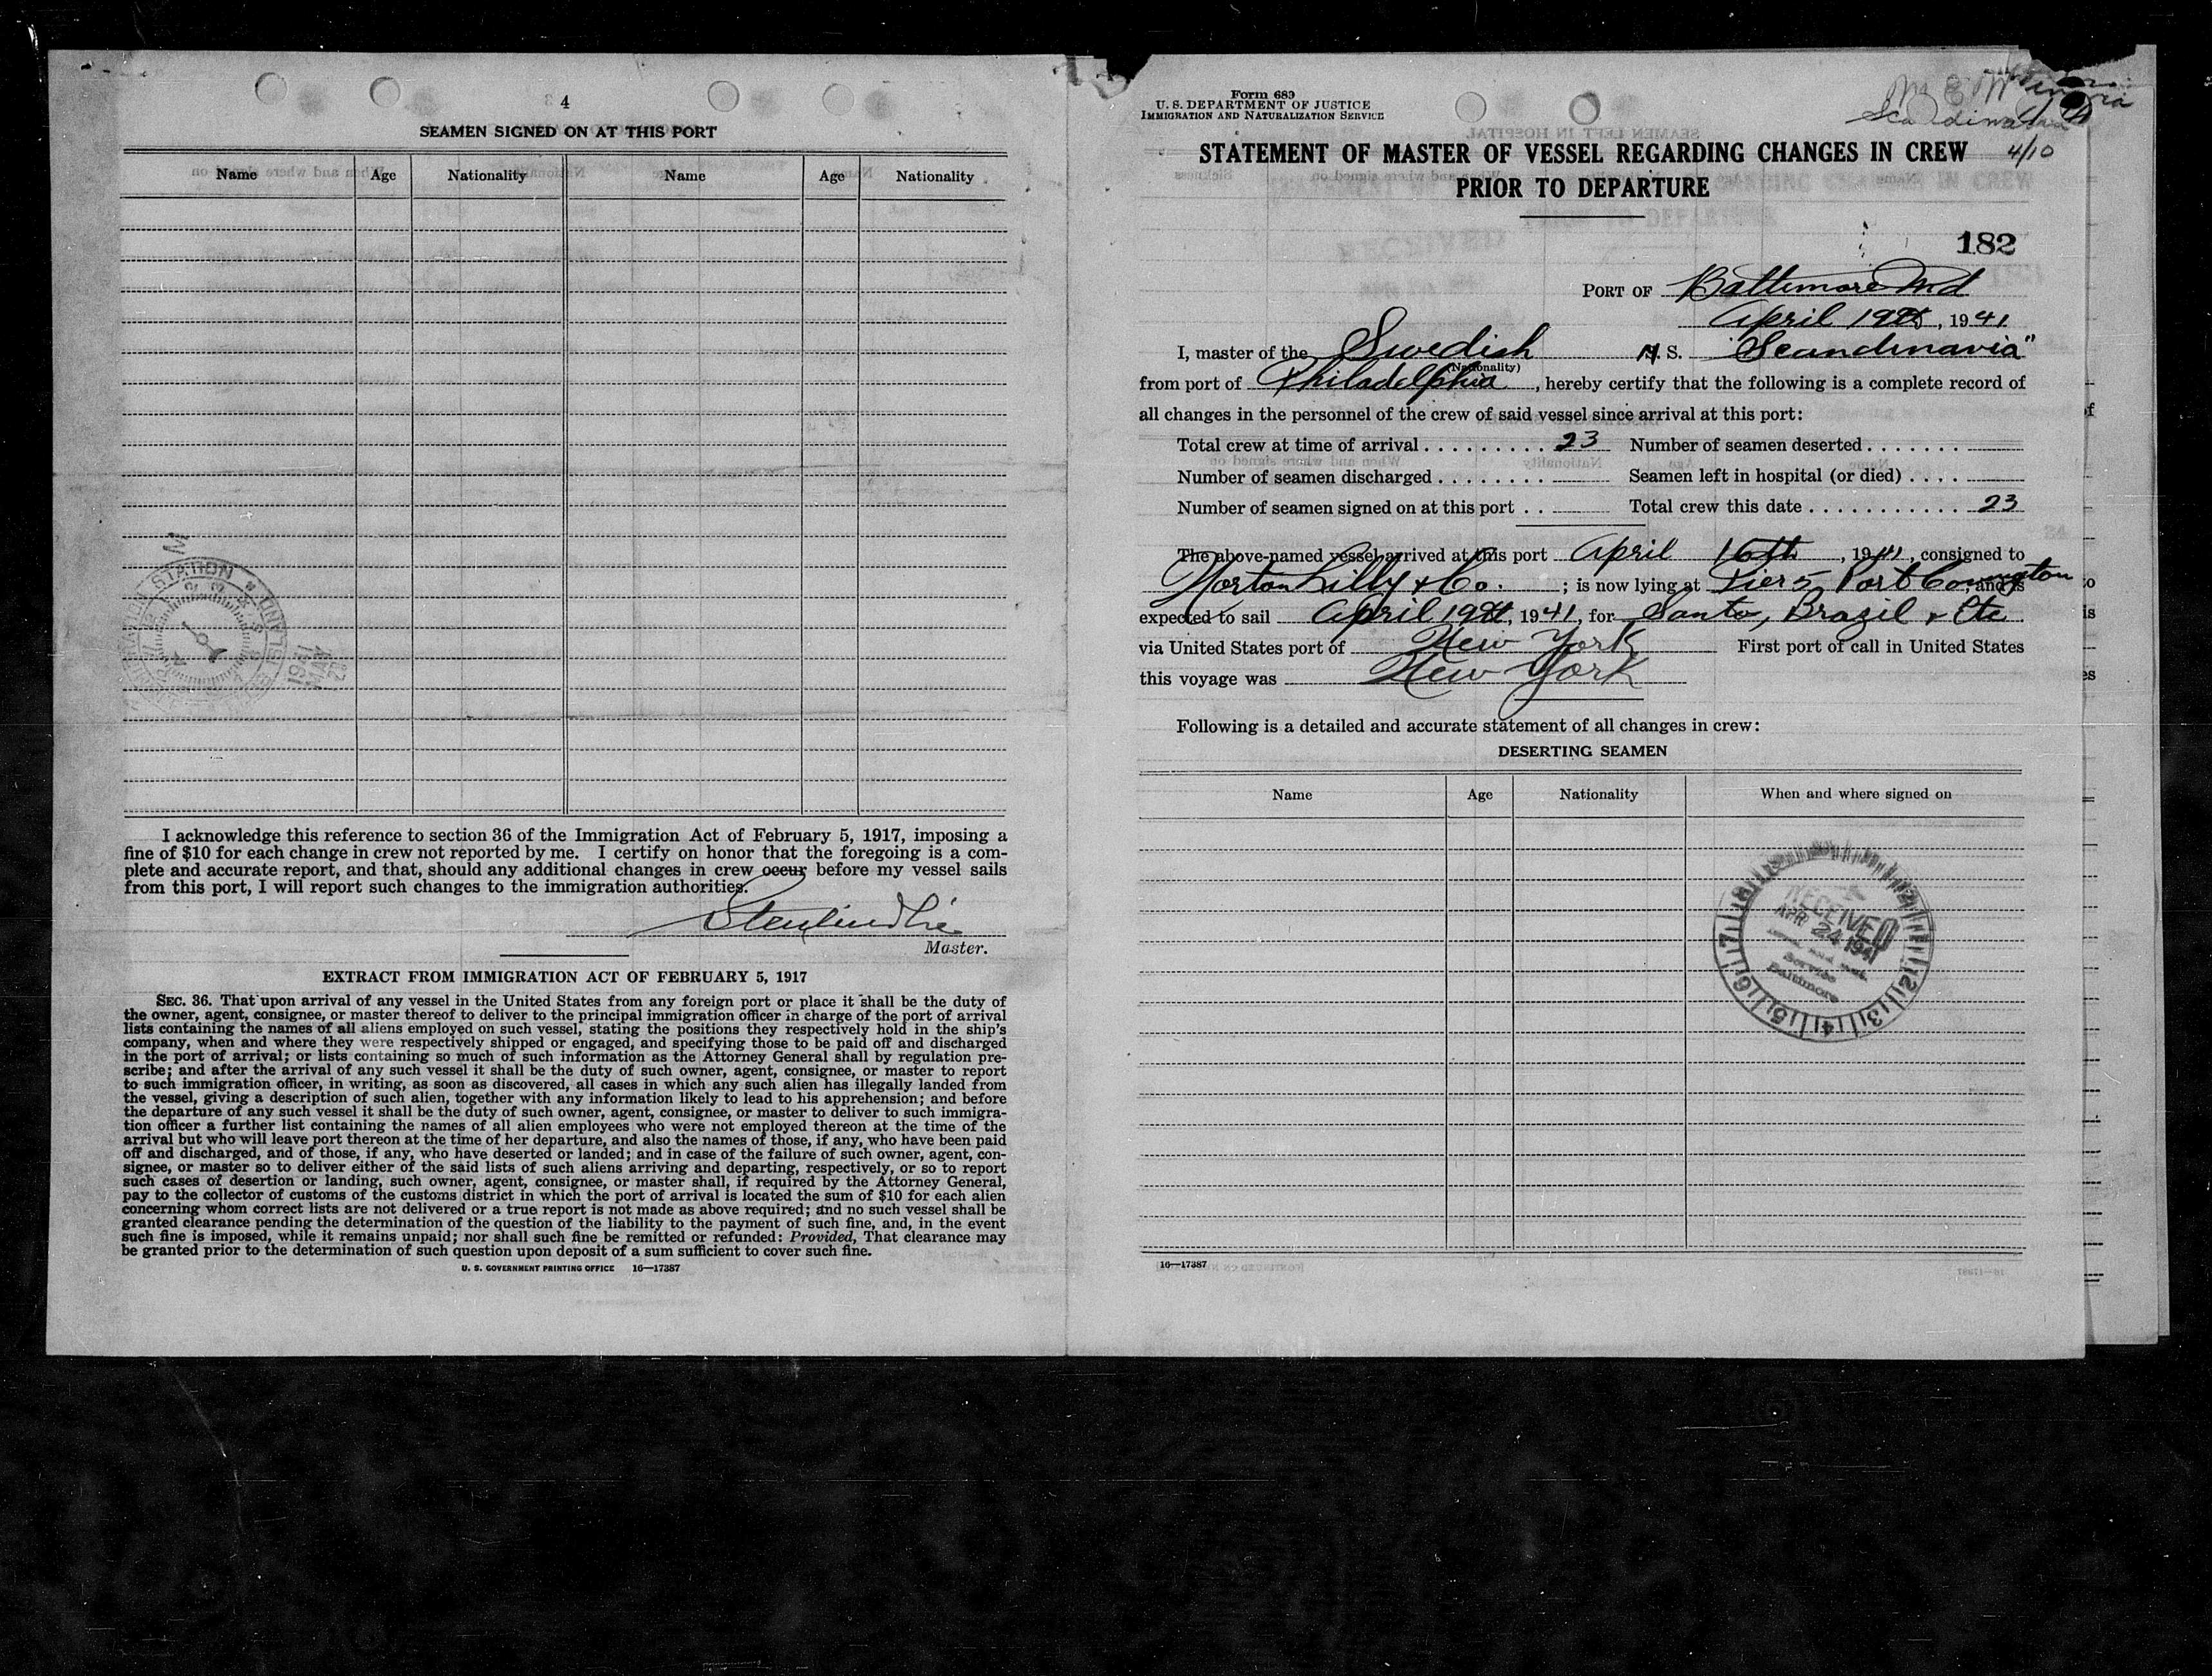 4
SEAMEN SIGNED ON AT THIS PORT
Name Age Nationality Name Age Nationality
STATION
1941
MAY
I acknowledge this reference to section 36 of the Immigration Act of February 5, 1917, imposing a
fine of $10 for each change in crew not reported by me. I certify on honor that the foregoing is a com-
plete and accurate report, and that, should any additional changes in crew occur before my vessel sails
from this port, I will report such changes to the immigration authorities.
Master.
EXTRACT FROM IMMIGRATION ACT OF FEBRUARY 5, 1917
SEC. 36. That upon arrival of any vessel in the United States from any foreign port or place it shall be the duty of
the owner, agent, consignee, or master thereof to deliver to the principal immigration officer in charge of the port of arrival
lists containing the names of all aliens employed on such vessel, stating the positions they respectively hold in the ship's
company, when and where they were respectively shipped or engaged, and specifying those to be paid off and discharged
in the port of arrival; or lists containing so much of such information as the Attorney General shall by regulation pre-
scribe; and after the arrival of any such vessel it shall be the duty of such owner, agent, consignee, or master to report
to such immigration officer, in writing, as soon as discovered, all cases in which any such alien has illegally landed from
the vessel, giving a description of such alien, together with any information likely to lead to his apprehension; and before
the departure of any such vessel it shall be the duty of such owner, agent, consignee, or master to deliver to such immigra-
tion officer a further list containing the names of all alien employees who were not employed thereon at the time of the
arrival but who will leave port thereon at the time of her departure, and also the names of those, if any, who have been paid
off and discharged, and of those, if any, who have deserted or landed; and in case of the failure of such owner, agent, con-
signee, or master so to deliver either of the said lists of such aliens arriving and departing, respectively, or so to report
such cases of desertion or landing, such owner, agent, consignee, or master shall, if required by the Attorney General,
pay to the collector of customs of the customs district in which the port of arrival is located the sum of $10 for each alien
concerning whom correct lists are not delivered or a true report is not made as above required; and no such vessel shall be
granted clearance pending the determination of the question of the liability to the payment of such fine, and, in the event
such fine is imposed, while it remains unpaid; nor shall such fine be remitted or refunded: Provided, That clearance may
be granted prior to the determination of such question upon deposit of a sum sufficient to cover such fine.
U. S. GOVERNMENT PRINTING OFFICE 16—17387
Form 689
U. S. DEPARTMENT OF JUSTICE
IMMIGRATION AND NATURALIZATION SERVICE
Scandinavia
4/10
STATEMENT OF MASTER OF VESSEL REGARDING CHANGES IN CREW
PRIOR TO DEPARTURE
182
PORT OF Baltimore Md
April 19th, 1941
I, master of the Swedish M. S. "Scandinavia"
(Nationality)
from port of Philadelphia, hereby certify that the following is a complete record of
all changes in the personnel of the crew of said vessel since arrival at this port:
Total crew at time of arrival . . . . . . . . . 23 Number of seamen deserted . . . . . . .
Number of seamen discharged . . . . . . . . Seamen left in hospital (or died) . . . .
Number of seamen signed on at this port . . Total crew this date . . . . . . . . . . . . 23
The above-named vessel arrived at this port April 16th, 1941, consigned to
Norton Lilly & Co. ; is now lying at Pier 5 Port Covington, and is
expected to sail April 19th, 1941, for Santo, Brazil & Etc
via United States port of New York First port of call in United States
this voyage was New York
Following is a detailed and accurate statement of all changes in crew:
DESERTING SEAMEN
Name Age Nationality When and where signed on
RECEIVED
APR 24 1941
Service
Baltimore
16—17387